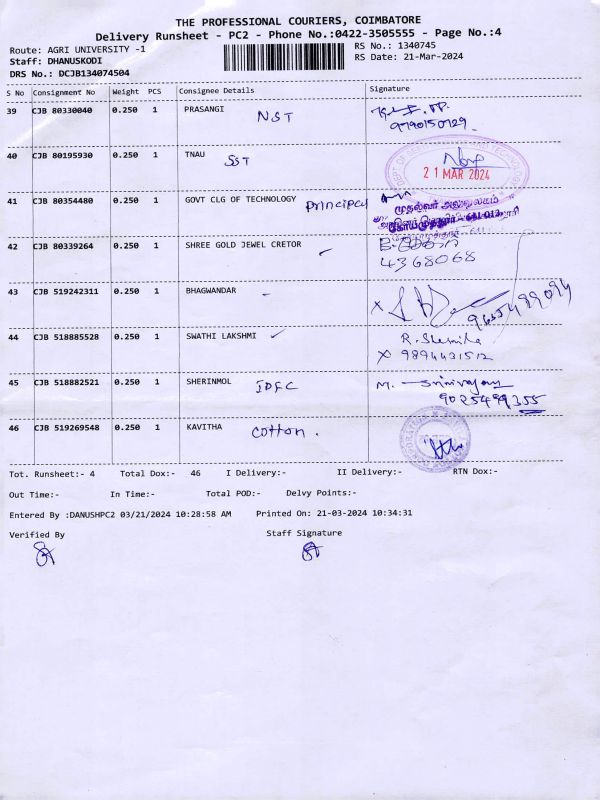 THE PROFESSIONAL COURIERS, COIMBATORE
Delivery Runsheet - PC2 - Phone No.:0422-3505555 - Page No.:4
Route: AGRI UNIVERSITY -1 RS No.: 1340745
Staff: DHANUSKODI RS Date: 21-Mar-2024
DRS No.: DCJB134074504
S No Consignment No Weight PCS Consignee Details Signature
39 CJB 80330040 0.250 1 PRASANGI NST
9790150129
40 CJB 80195930 0.250 1 TNAU SST
21 MAR 2024
41 CJB 80354480 0.250 1 GOVT CLG OF TECHNOLOGY principal
முதல்வர் அலுவலகம்
42 CJB 80339264 0.250 1 SHREE GOLD JEWEL CRETOR
4368068
43 CJB 519242311 0.250 1 BHAGWANDAR -
X 9655499094
44 CJB 518885528 0.250 1 SWATHI LAKSHMI R. Sharmila
X 9894431512
45 CJB 518882521 0.250 1 SHERINMOL IDFC M.
9025499355
46 CJB 519269548 0.250 1 KAVITHA cotton.
Tot. Runsheet:- 4 Total Dox:- 46 I Delivery:- II Delivery:- RTN Dox:-
Out Time:- In Time:- Total POD:- Delvy Points:-
Entered By :DANUSHPC2 03/21/2024 10:28:58 AM Printed On: 21-03-2024 10:34:31
Verified By Staff Signature